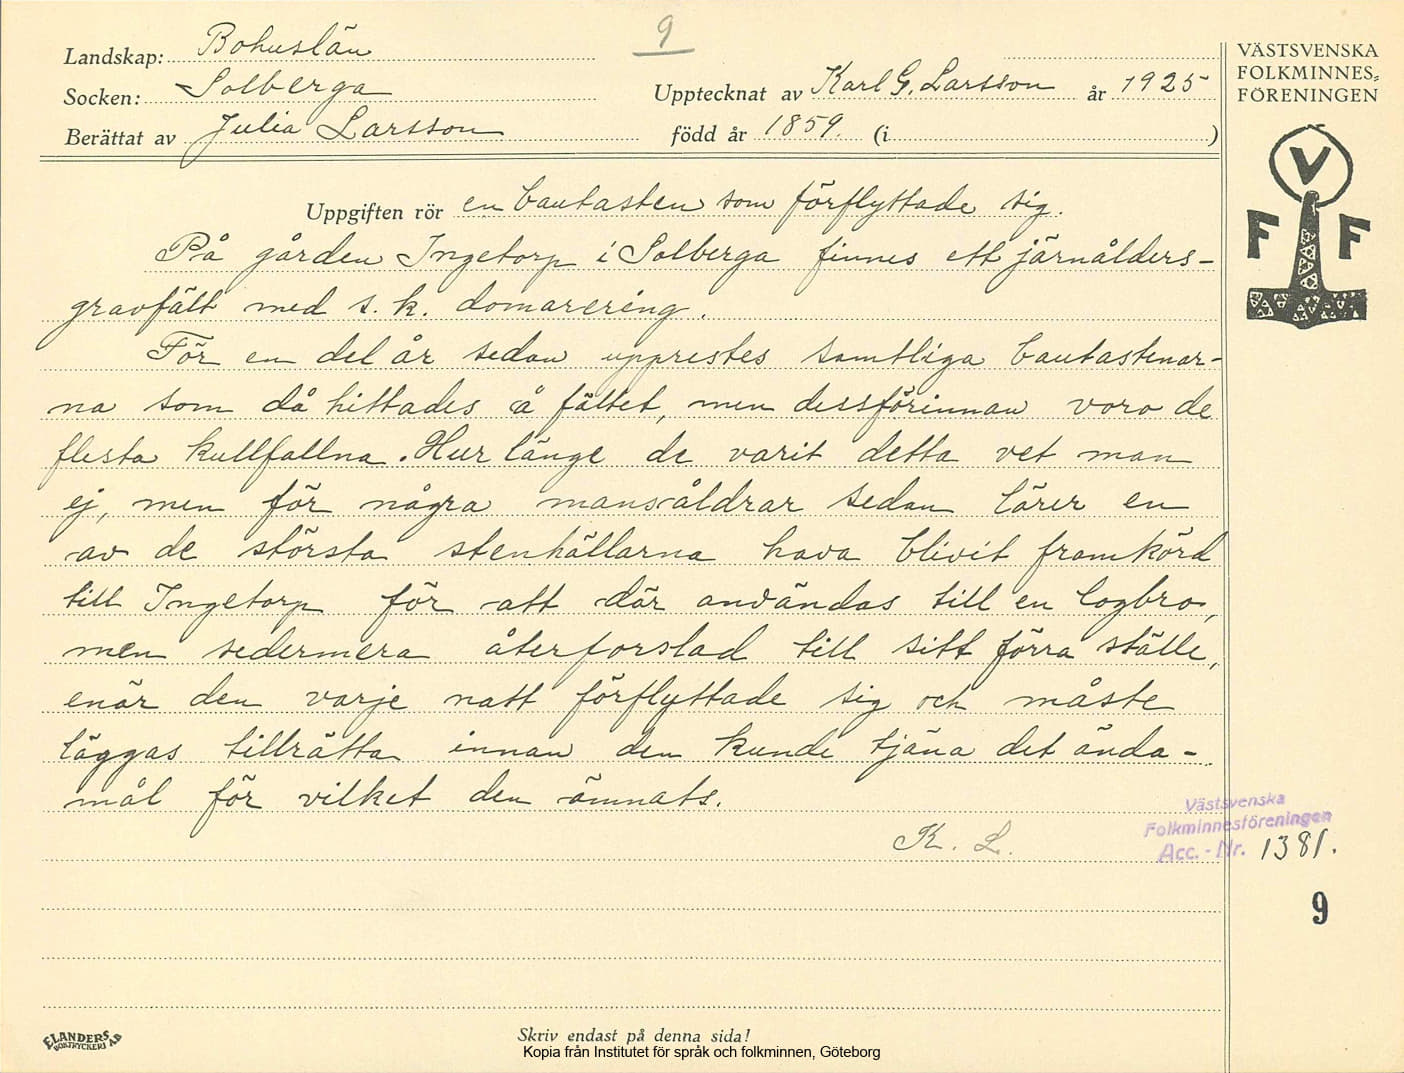 9
Landskap: Bohuslän
Socken: Solberga
Upptecknat av Karl G. Larsson år 1925
Berättat av Julia Larsson född år 1859. (i )
VÄSTSVENSKA
FOLKMINNES-
FÖRENINGEN
V
F F
Uppgiften rör en bautasten som förflyttade sig.
På gården Ingetorp i Solberga finnes ett järnålders-
gravfält med s.k. domarering.
För en del år sedan upprestes samtliga bautastenar-
na som då hittades å fältet, men dessförinnan voro de
flesta kullfallna. Hur länge de varit detta vet man
ej, men för några mansåldrar sedan lärer en
av de största stenhällarna hava blivit framkörd
till Ingetorp för att där användas till en logbro,
men sedermera återforslad till sitt förra ställe,
enär den varje natt förflyttade sig och måste
läggas tillrätta innan den kunde tjäna det ända-
mål för vilket den ämnats.
K. L.
Västsvenska
Folkminnesföreningen
Acc. - Nr. 1381.
9
ELANDERS
BOKTRYCKERI AB
Skriv endast på denna sida!
Kopia från Institutet för språk och folkminnen, Göteborg